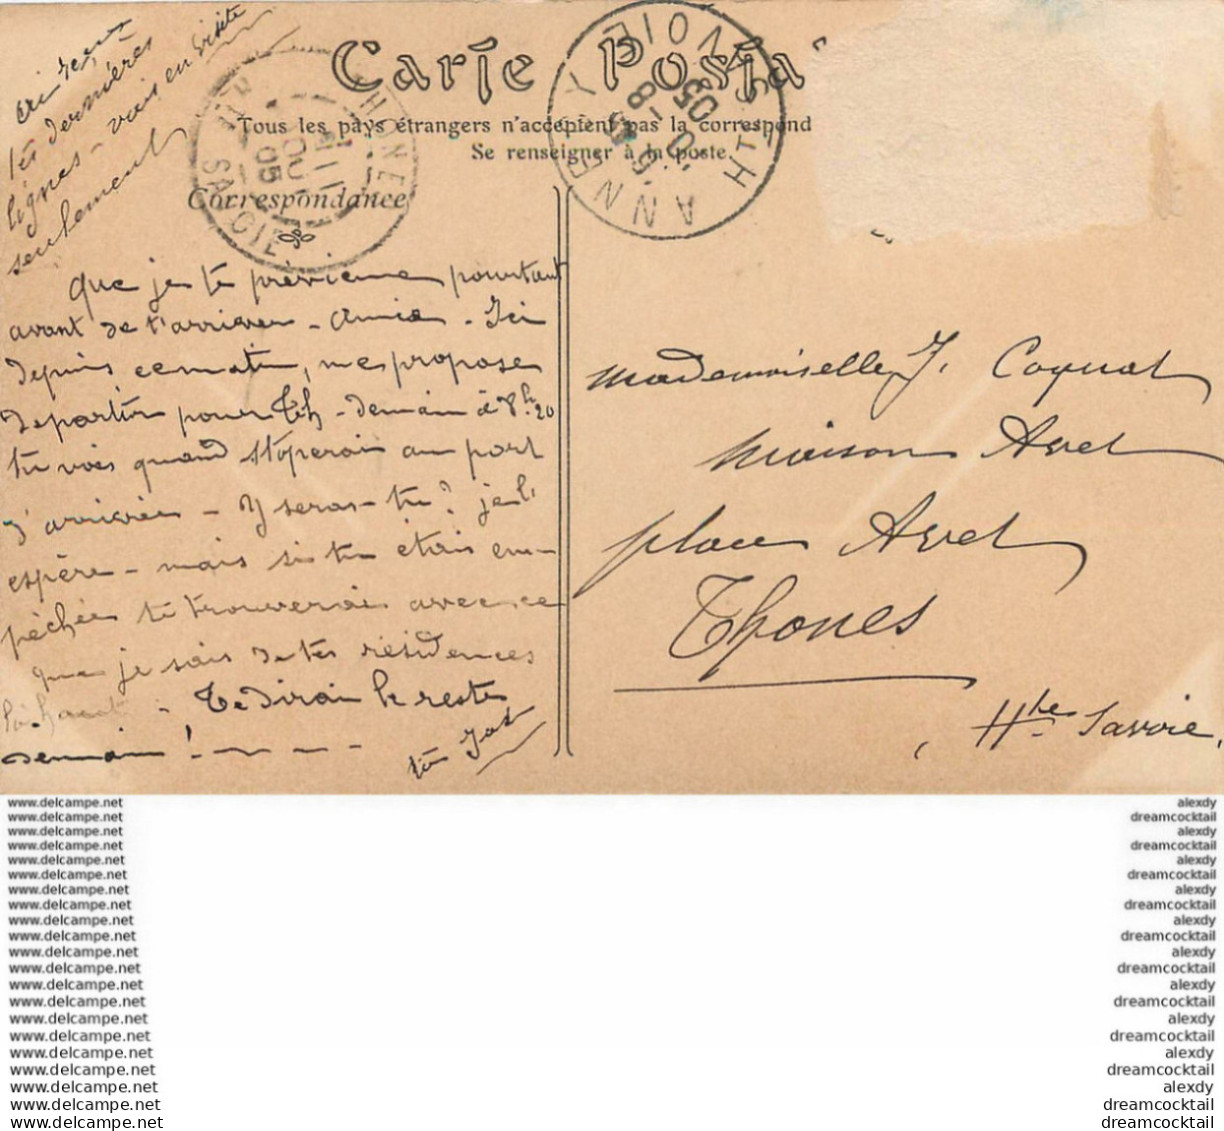 Carte Postal
Tous les pays étrangers n'acceptent pas la correspond
Se renseigner à la poste.
Correspondance
ANNECY HTE SAVOIE
8-8
05
SAVOIE
AOUT
05
ai reçu
tes dernières
lignes - vais en visite
seulement
Que je te prévienne pourtant
avant de t'arriver - Amie - Ici
depuis ce matin, me propose
de partir pour Th - demain à 8h20
tu vois quand stoperai au port
d'arrivée - Y seras-tu? je l'
espère - mais si tu étais em-
pêchée te trouverai avec ce
que je sais de tes résidences
là haut - Te dirai le reste
demain!
Mademoiselle J. Coquat
Maison Avet
place Avet
Thones
Hte Savoie,
www.delcampe.net alexdy
www.delcampe.net dreamcocktail
www.delcampe.net alexdy
www.delcampe.net dreamcocktail
www.delcampe.net alexdy
www.delcampe.net dreamcocktail
www.delcampe.net alexdy
www.delcampe.net dreamcocktail
www.delcampe.net alexdy
www.delcampe.net dreamcocktail
www.delcampe.net alexdy
www.delcampe.net dreamcocktail
www.delcampe.net alexdy
www.delcampe.net dreamcocktail
www.delcampe.net alexdy
www.delcampe.net dreamcocktail
www.delcampe.net alexdy
www.delcampe.net dreamcocktail
www.delcampe.net alexdy
www.delcampe.net dreamcocktail
www.delcampe.net dreamcocktail